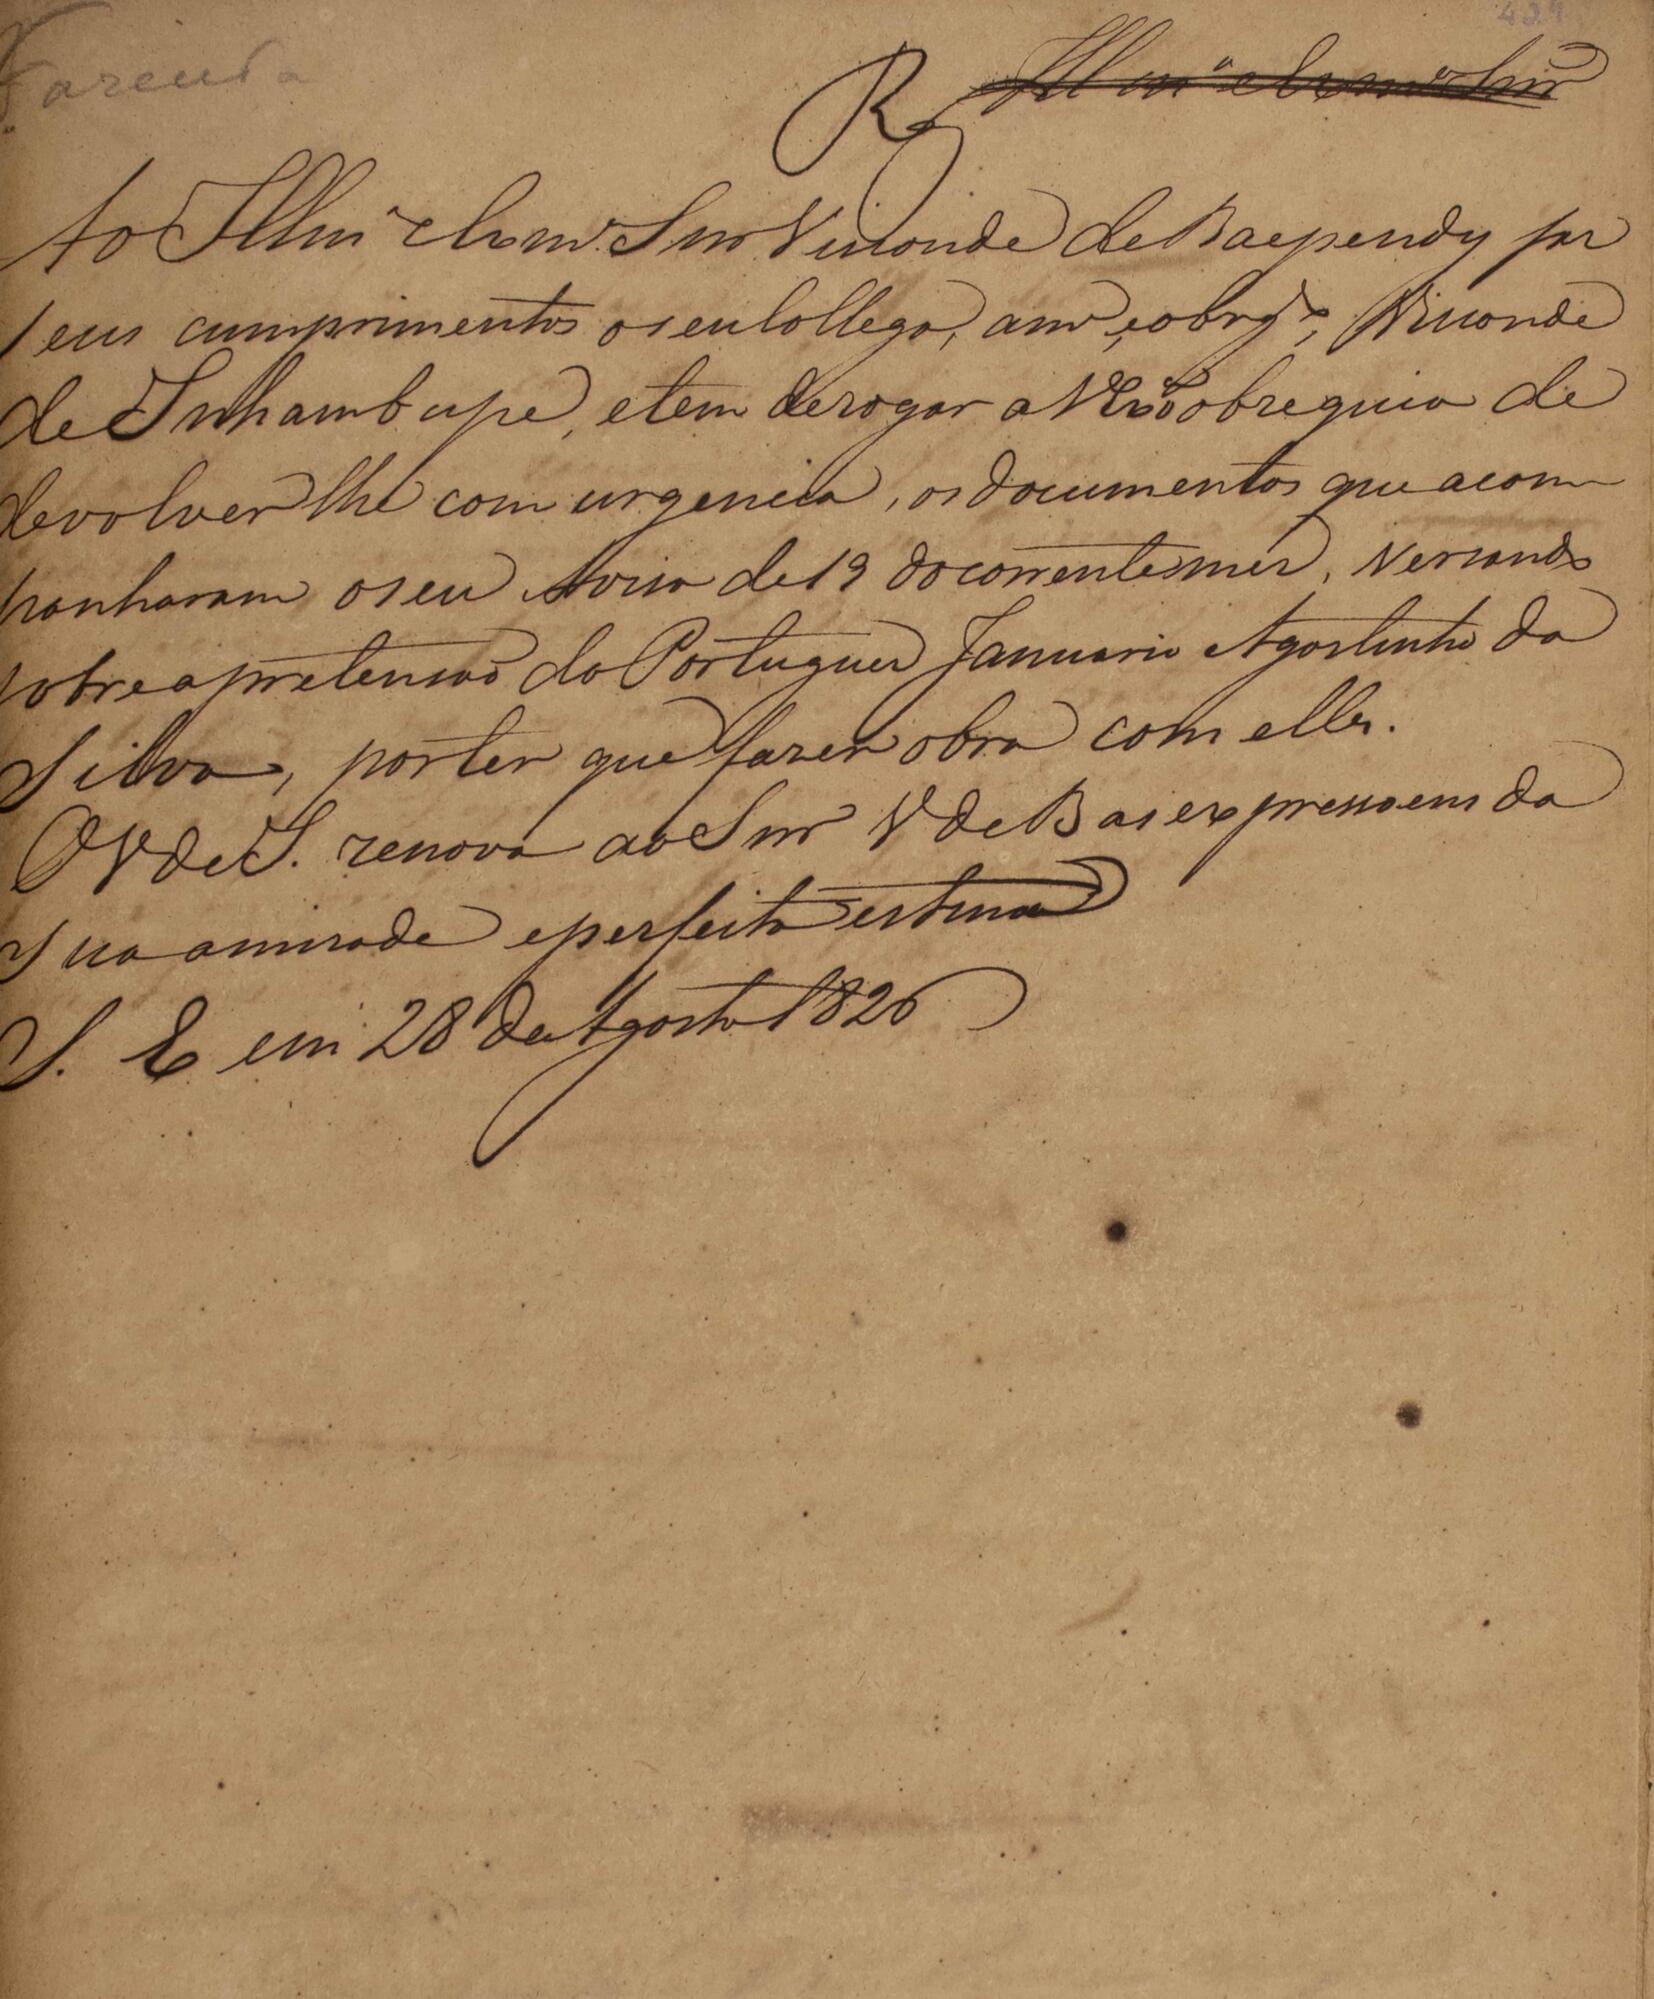 424
Fazenda
R Illmo e Exmo Snr
Ao Illmo e Exmo Snr Visconde de Baependy faz
seus cumprimentos o seu Collega, amo, e obrgdo, Visconde
de Inhambupe, e tem de rogar a V Exa o obsequio de
devolver lhe com urgencia, os documentos que acom
panharam o seu Aviso de 19 do corrente mez, versando
sobre a pretensão do Portuguez Januario Agostinho da
Silva, por ter que fazer obra com elles.
O V de I. renova ao Snr V de B as expressoens da
sua amisade e perfeita estima
S. E em 28 de Agosto 1826